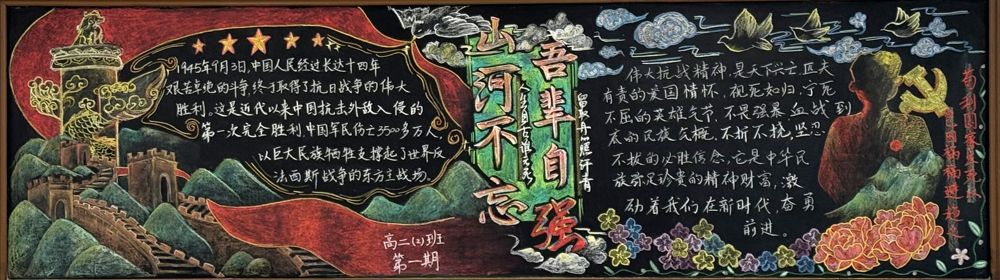 1945年9月3日,中国人民经过长达十四年
艰苦卓绝的斗争,终于取得了抗日战争的伟大
胜利。这是近代以来中国抗击外敌入侵的
第一次完全胜利,中国军民伤亡3500多万人,
以巨大民族牺牲支撑起了世界反
法西斯战争的东方主战场。
高二(2)班
第一期
山河不忘
吾辈自强
人生自古谁无死
留取丹心照汗青
伟大抗战精神,是天下兴亡、匹夫
有责的爱国情怀,视死如归、宁死
不屈的英雄气节,不畏强暴、血战到
底的民族气概,不折不挠、坚忍
不拔的必胜信念,它是中华民
族弥足珍贵的精神财富,激
励着我们在新时代,奋勇
前进。
苟利国家生死以
岂因祸福避趋之